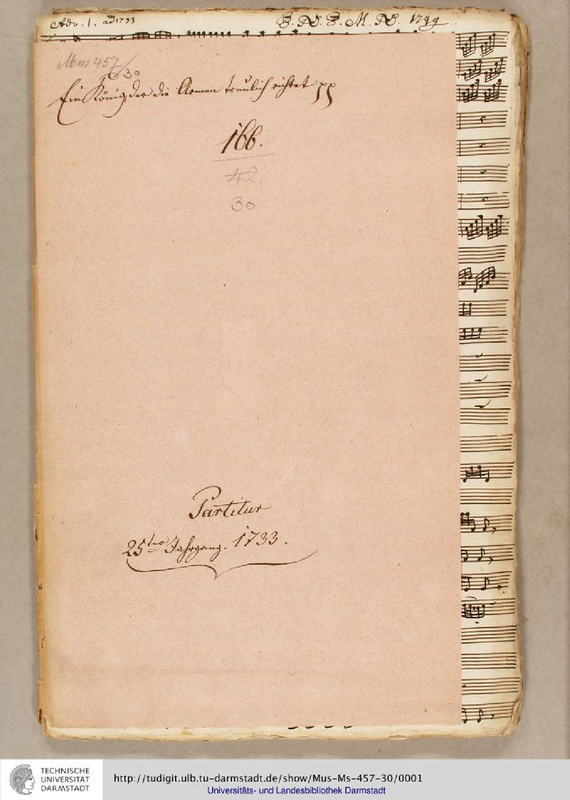 Adv. 1. ad 1733
Mus 457/30
Ein König der die Armen treulich richtet pp
166.
42.
30
Partitur
25ter Jahrgang. 1733.
TECHNISCHE
UNIVERSITÄT
DARMSTADT
http://tudigit.ulb.tu-darmstadt.de/show/Mus-Ms-457-30/0001
Universitäts- und Landesbibliothek Darmstadt